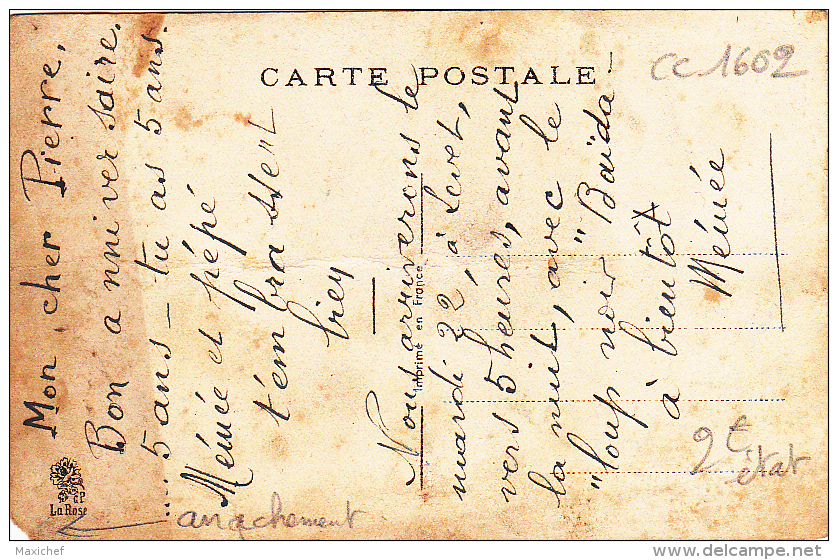 CARTE POSTALE
CC 1602
Mon cher Pierre,
Bon anniversaire.
5 ans — tu as 5 ans.
Mémée et pépé
t'embrassent
bien
Nous arriverons le
mardi 22, à Levet,
vers 5 heures, avant
la nuit, avec le
"loup noir" Baïda -
à bientôt
Mémée
Imprimé en France
La Rose
arrachement
2e
état
Maxichef
www.delcampe.net